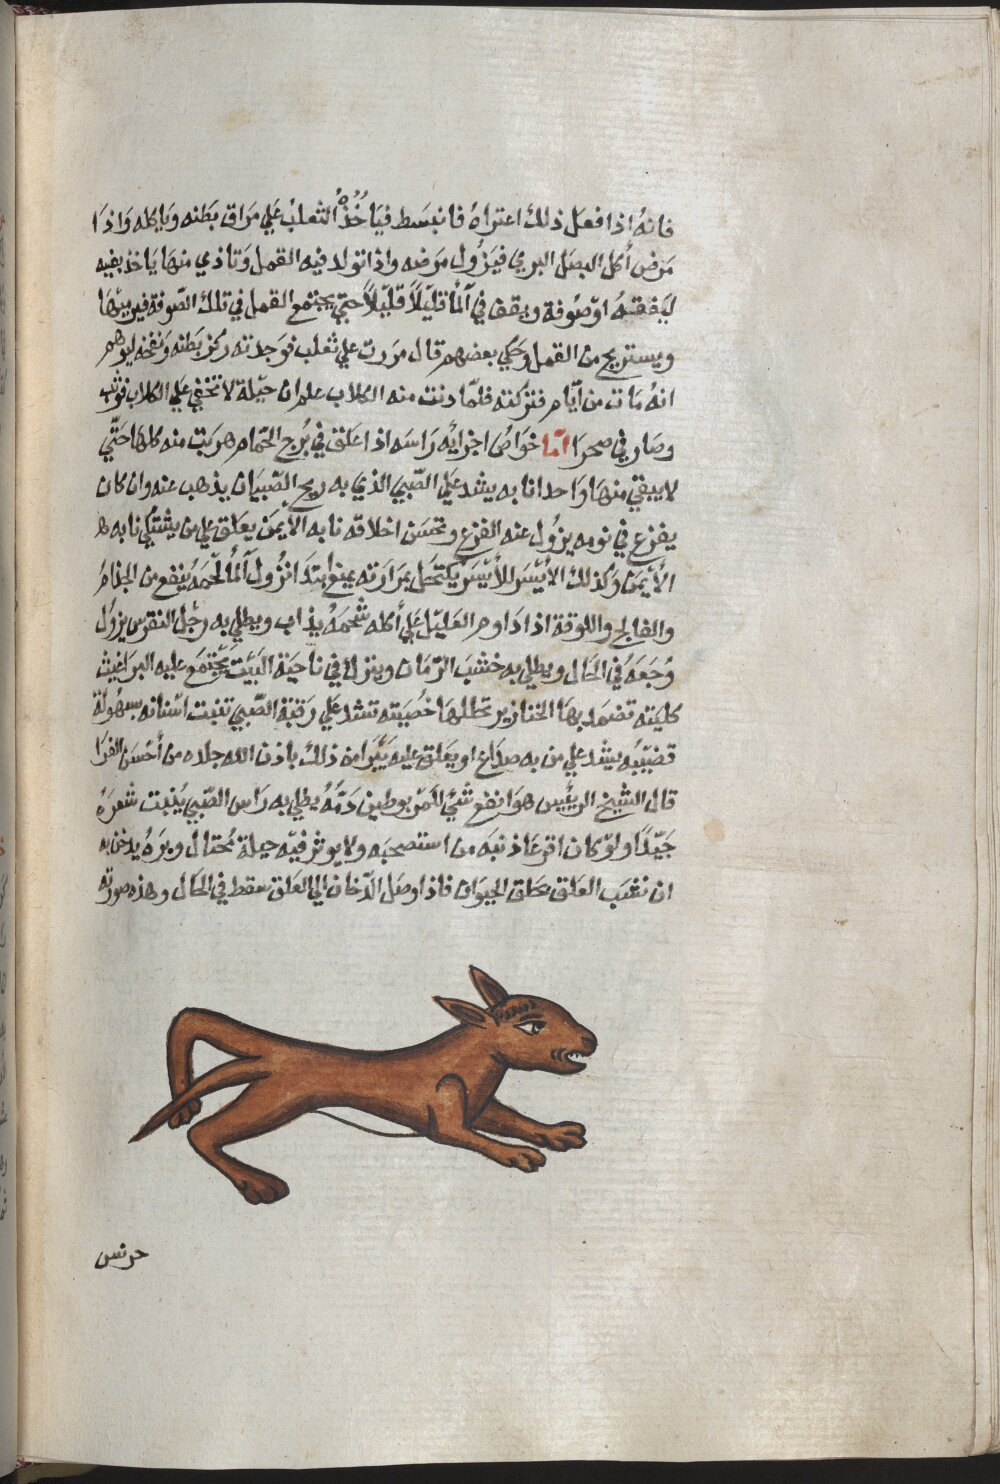 فانهُ اذا فعل ذلك اعتراهُ فانبسط فيَاخُذُهُ الثعلبُ عَلي مَراق بَطنه وَياكله وَاذا
مَرض أكل البصَل البري فيَزُول مَرضه واذا تولد فيه القمل وَتاذي منها يَاخذ بفيه
ليفقتهُ او صُوفة ويقف في المأ قليلاً قليلاً حتي يجتمع القمل في تلك الصّوفة فيرميها
ويستريح من القمل وحَكي بعضهم قال مرَرت علي ثعلب فوجدته ركز بَطنه وَنفخه ليوهم
انهُ مَات من أيّام فتركته فلمّا دنت منه الكلاب علم ان حيلة لا تخفي عَلي الكلاب فوثب
وصَار في صحرا امّا خوَاصُ اجزائه رَاسَه اذا اعلق في بُرج الحمّام هربَت منه كلها حَتّي
لا يبقي منهَا وَاحد انابه يشد عَلي الصّبي الذي به ريح الصّبيَان يذهب عنه وان كان
يفزع في نومه يزُول عنه الفزع وتحسَن اخلاقه نابه الأيمَن يعَلق علي من يشتكي نابه
الأيمَن وَكذلك الأيْسَر للأيْسَر يكتحَل بمرَارته يمنع ابتدَا نزُول المأ لحمَهُ ينفع من الجذام
والفالج واللوقة اذا دَاوم العَليل عَلي أكله شحمَهُ يذاب ويطلي به رجْل النقرس يزوُل
وُجَعَهُ في الحَال ويطلي به خشَبَ الرّمان وينزل في ناحيَة البَيت يَجْتمَع عليه البرَاغيث
كليَته تضمَد بهَا الخنازير تحللهَا خصيَته تشد عَلي رَقبة الصّبي تنبت اسْنانه بسهُولة
قضيبَه يشد علي من به صدَاع او يعَلق عليه يَبرَا من ذلك باذن الله جلده من أحْسَن الفرَا
قال الشيخ الريئيس هوَ انفع شئ للمرْبوطين دَمّهُ يطلي به رَاس الصّبي يُنبت شعرَهُ
جَيّدًا ولوْ كان اقرعَا ذنبَه من استصحبَه ولا يوثر فيه حيلة مُحتال وبرَهُ يدخن به
ان نشبَ العَلق بحَلق الحيوَان فاذا وصَل الدّخان الي العَلق سقط في الحَال وهذه صورته